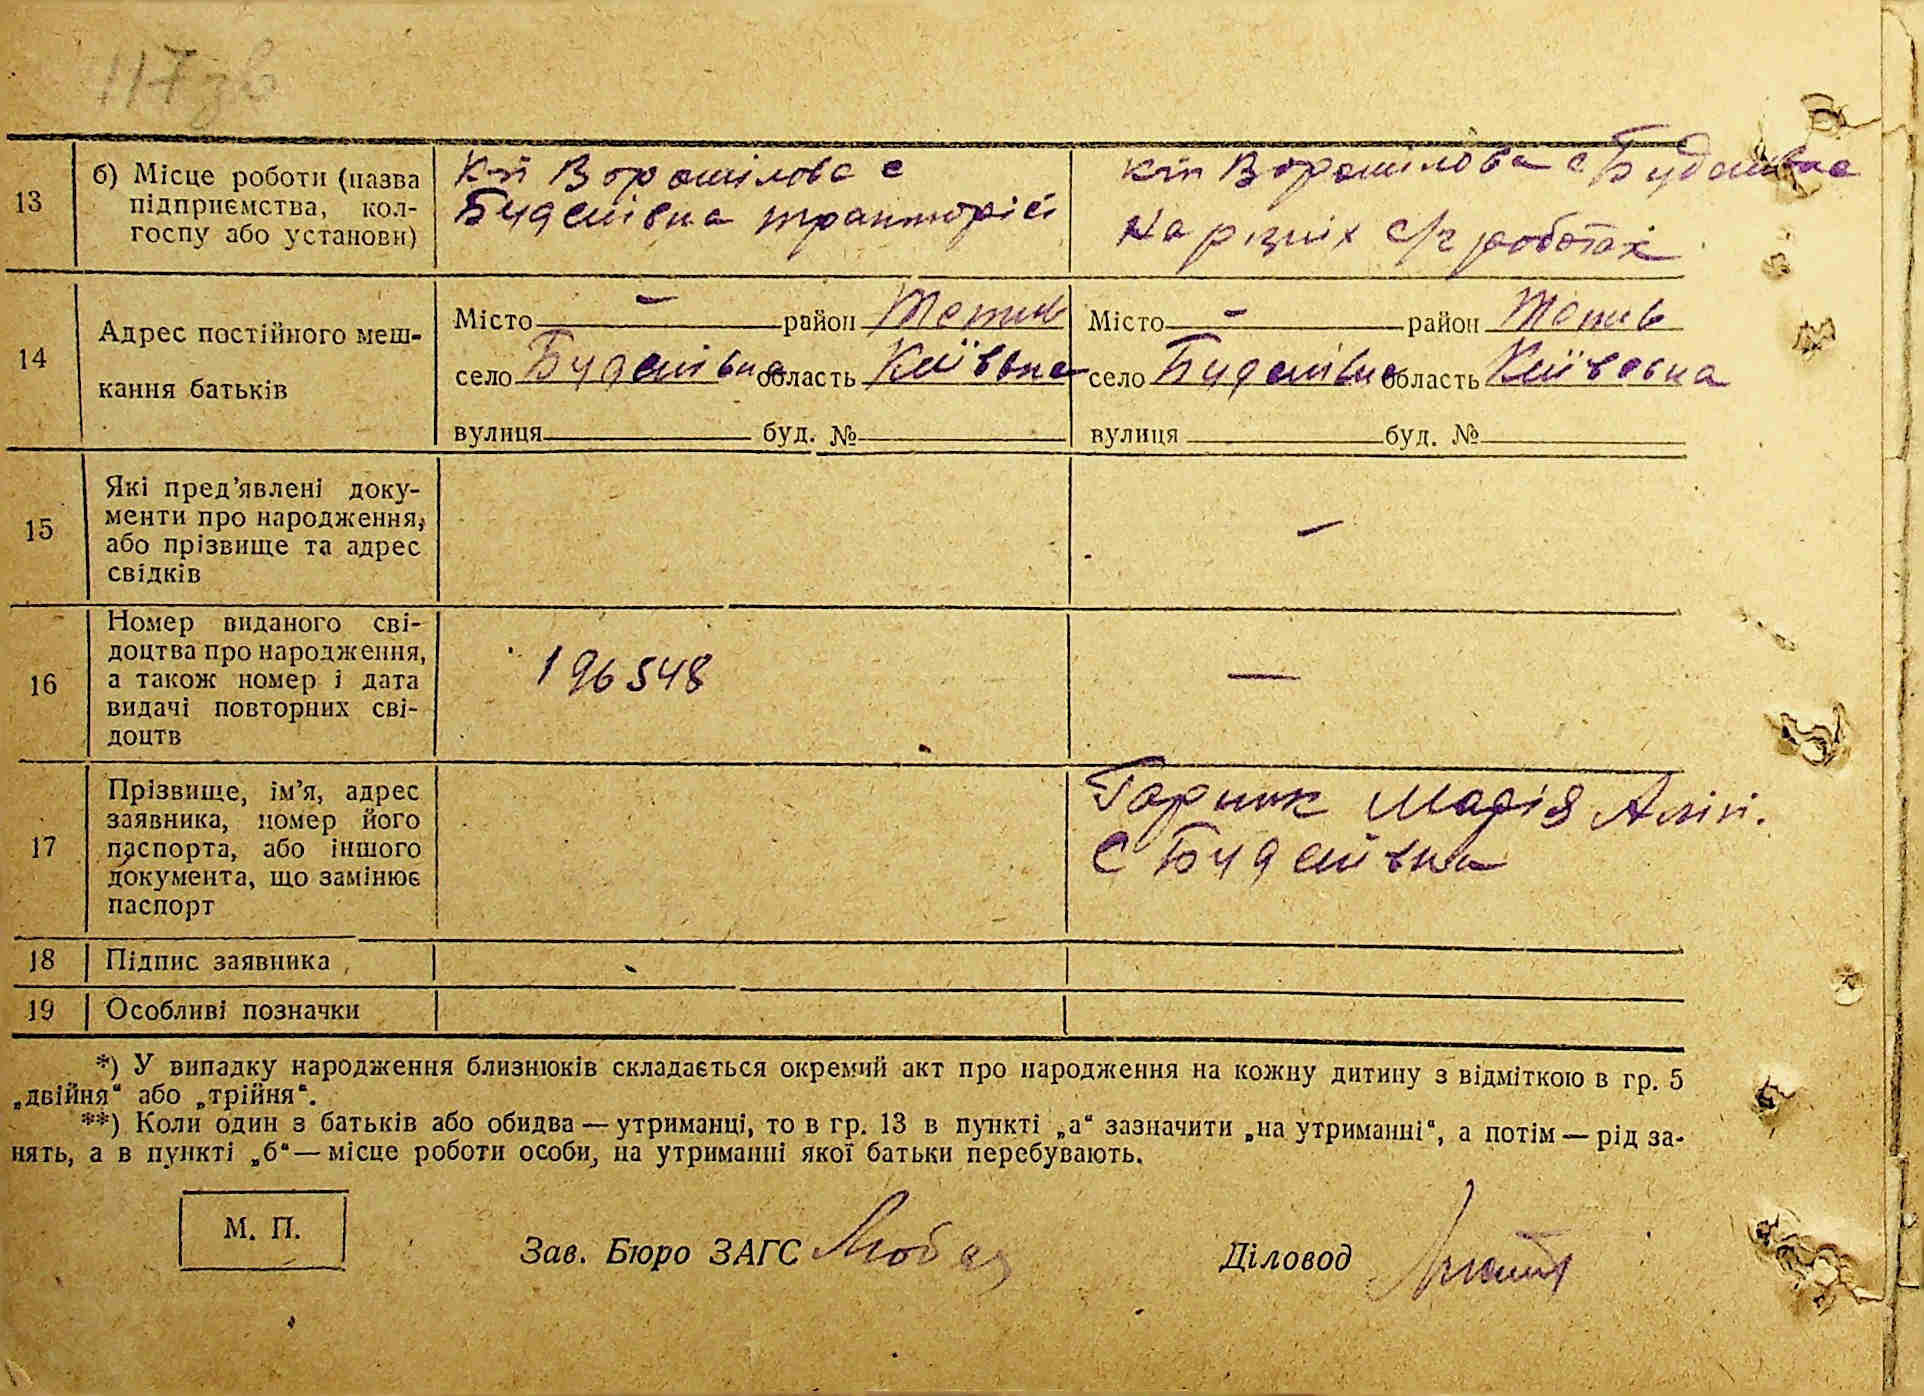 117 зв
13
б) Місце роботи (назва підприємства, колгоспу або установи)
К-п Ворошілова с
Буденівна тракторіст
К-п Ворошілова с Буденівна
На різніх с/г роботах
14
Адрес постійного мешкання батьків
Місто — район Тетиїв
село Буденівна область Київвна
вулиця буд. №
Місто — район Тетиїв
село Буденівна область Київвсна
вулиця буд. №
15
Які пред’явлені документи про народження, або прізвище та адрес свідків
—
16
Номер виданого свідоцтва про народження, а також номер і дата видачі повторних свідоцтв
196548
—
17
Прізвище, ім’я, адрес заявника, номер його паспорта, або іншого документа, що замінює паспорт
Марія
с Буденівна
18 Підпис заявника
19 Особливі позначки
*) У випадку народження близнюків складається окремий акт про народження на кожну дитину з відміткою в гр. 5
„двійня“ або „трійня“.
**) Коли один з батьків або обидва — утриманці, то в гр. 13 в пункті „а“ зазначити „на утриманні“, а потім — рід за-
нять, а в пункті „б“ — місце роботи особи, на утриманні якої батьки перебувають.
М. П.
Зав. Бюро ЗАГС
Діловод